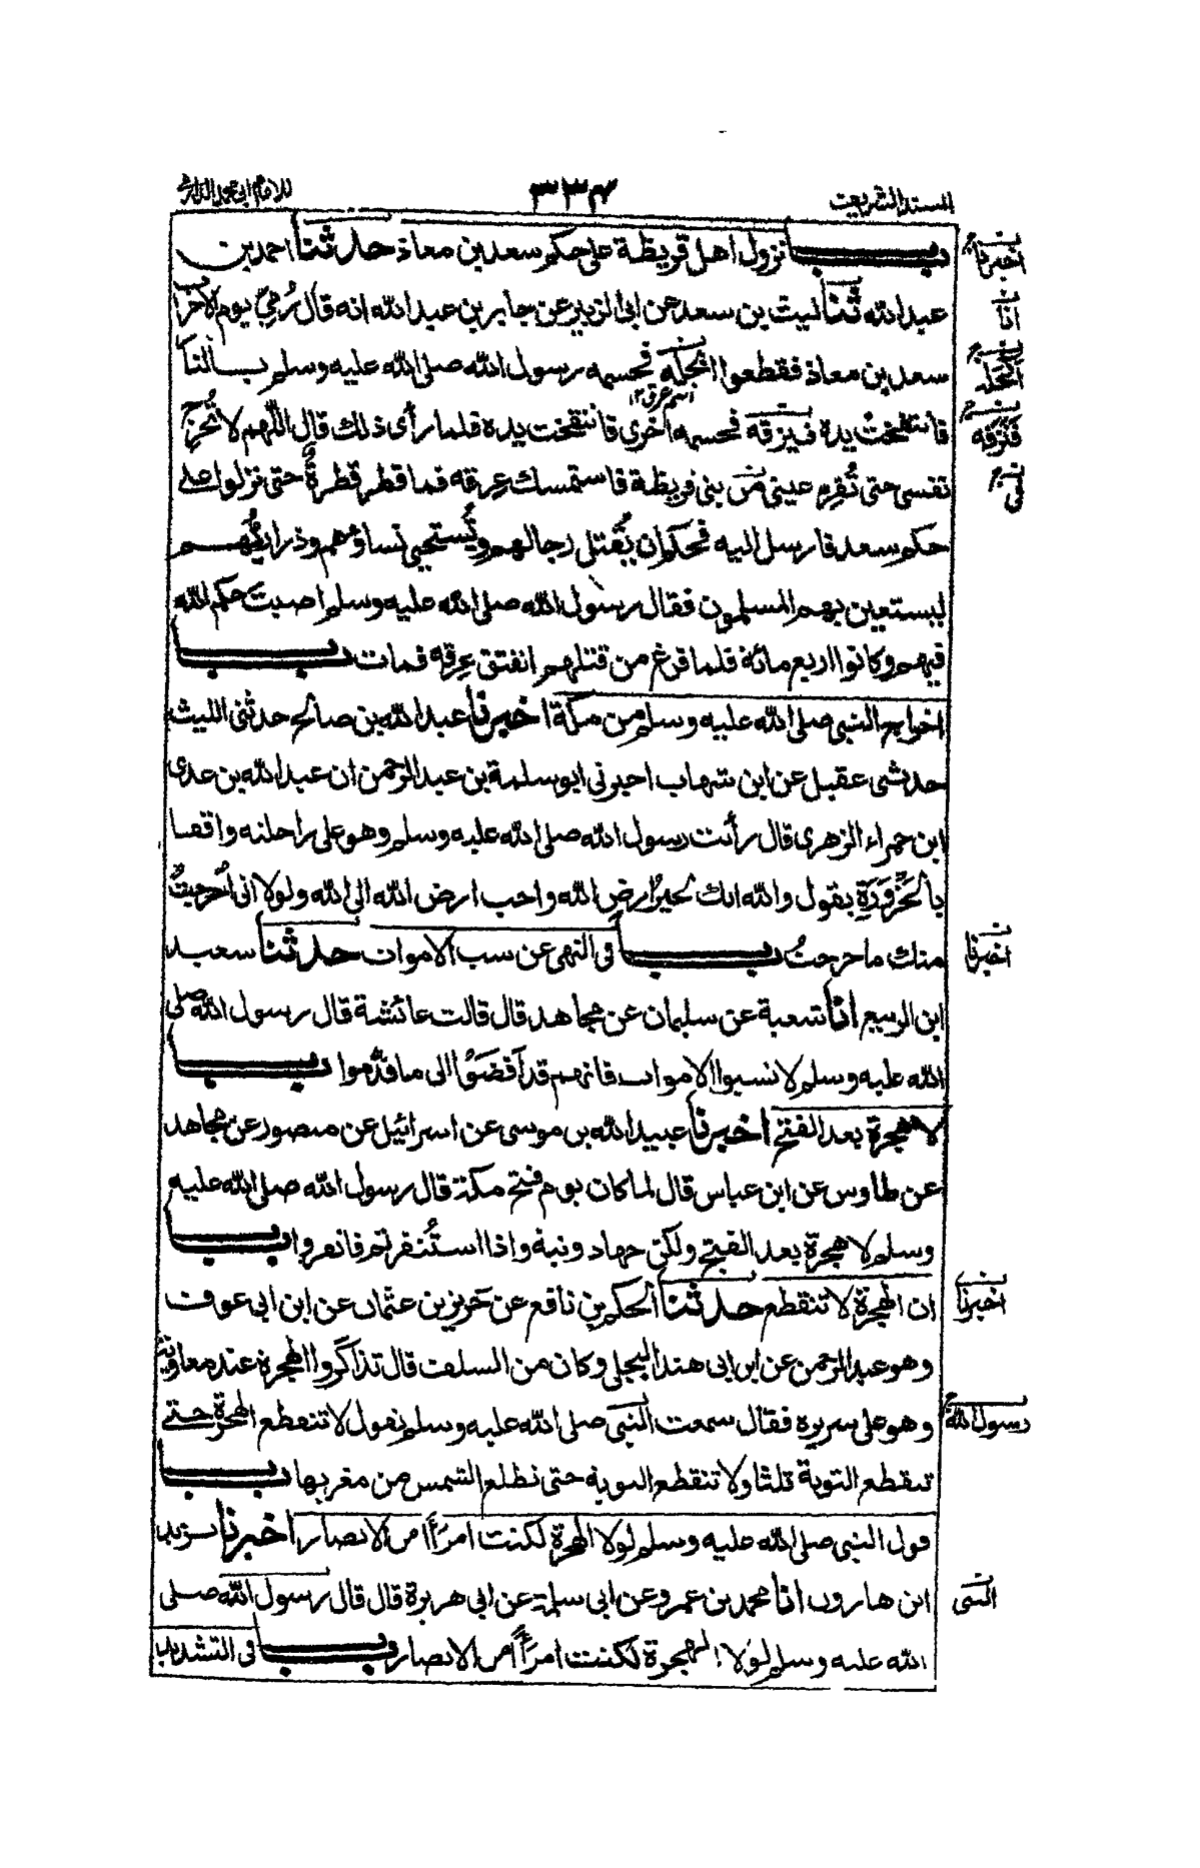 المسند الشريف
٣٣٤
للامام ابی محمد الدارمی
باب نزول اهل قريظة على حكم سعد بن معاذ حدثنا احمد بن
عبد الله ثنا ليث بن سعد عن ابی الزبير عن جابر بن عبد الله انه قال رُمِیَ يوم الاحزاب
سعد بن معاذ فقطعوا ابجله فحسمه رسول الله صلى الله عليه وسلم بالنار
اسم عرق ١٢
فانتفخت يده فنزفه فحسمه اخرى فانتفخت يده فلما رأى ذلك قال اللهم لا تُخرج
نفسی حتى تُقِر عينی من بنی قريظة فاستمسك عِرقه فما قطر قطرةً حتى نزلوا على
حكم سعد فارسل اليه فحكم ان يُقتل رجالهم ويُستحيی نساؤهم وذراريهم
ليستعين بهم المسلمون فقال رسول الله صلى الله عليه وسلم اصبتَ حكم الله
فيهم وكانوا اربع مائة فلما فرغ من قتلهم انفتق عِرقه فمات باب
اخراج النبی صلى الله عليه وسلم من مكة اخبرنا عبد الله بن صالح حدثنی الليث
حدثنی عقيل عن ابن شهاب اخبرنی ابو سلمة بن عبد الرحمن ان عبد الله بن عدی
ابن حمراء الزهری قال رأيت رسول الله صلى الله عليه وسلم وهو على راحلته واقفا
بالحَزْوَرَةِ يقول والله انك لخيرُ ارض الله واحب ارض الله الى الله ولولا انی اُخرجتُ
منك ما خرجتُ باب فی النهی عن سب الاموات حدثنا سعيد
ابن الربيع انا شعبة عن سليمان عن مجاهد قال قالت عائشة قال رسول الله صلى
الله عليه وسلم لا تسبوا الاموات فانهم قد اَفضَوْا الى ما قدَّموا باب
لا هجرة بعد الفتح اخبرنا عبيد الله بن موسى عن اسرائيل عن منصور عن مجاهد
عن طاوس عن ابن عباس قال لما كان يوم فتح مكة قال رسول الله صلى الله عليه
وسلم لا هجرة بعد الفتح ولكن جهاد ونية واذا استُنفرتم فانفروا باب
ان الهجرة لا تنقطع حدثنا الحكم بن نافع عن حَرِيز بن عثمان عن ابن ابی عوف
وهو عبد الرحمن عن ابی هند البجلی وكان من السلف قال تذاكروا الهجرة عند معاوية
وهو على سريره فقال سمعت النبی صلى الله عليه وسلم يقول لا تنقطع الهجرة حتى
تنقطع التوبة ثلثا ولا تنقطع التوبة حتى تطلع الشمس من مغربها باب
قول النبی صلى الله عليه وسلم لولا الهجرة لكنت امرَأً من الانصار اخبرنا يزيد
ابن هارون انا محمد بن عمرو عن ابی سلمة عن ابی هريرة قال قال رسول الله صلى
الله عليه وسلم لولا الهجرة لكنت امرَأً من الانصار باب فی التشديد
اخبرنا
انا
فنزفه
اخبرنا
اخبرنا
رسول الله
النبی